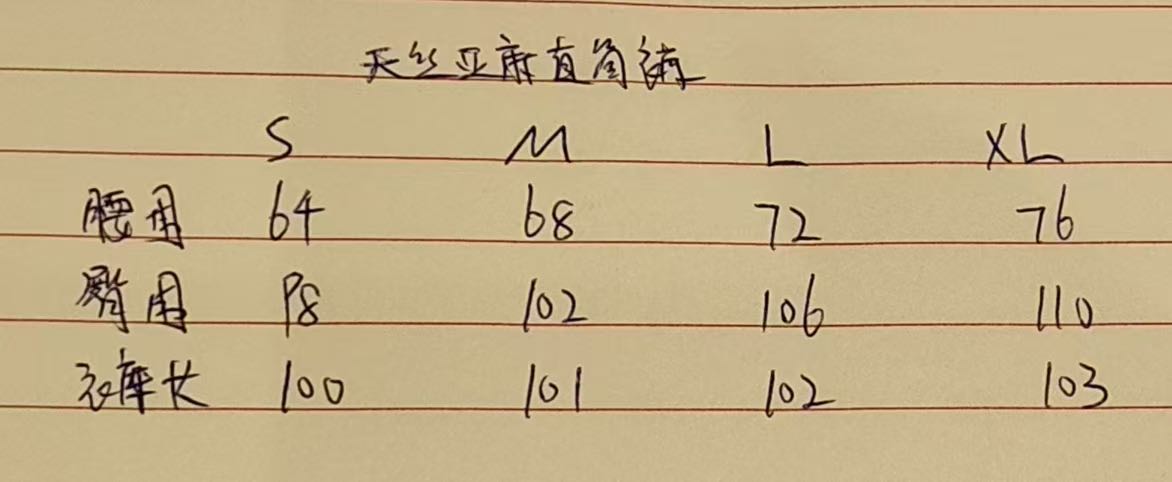 天丝亚麻直筒裤
S M L XL
腰围 64 68 72 76
臀围 98 102 106 110
裤长 100 101 102 103